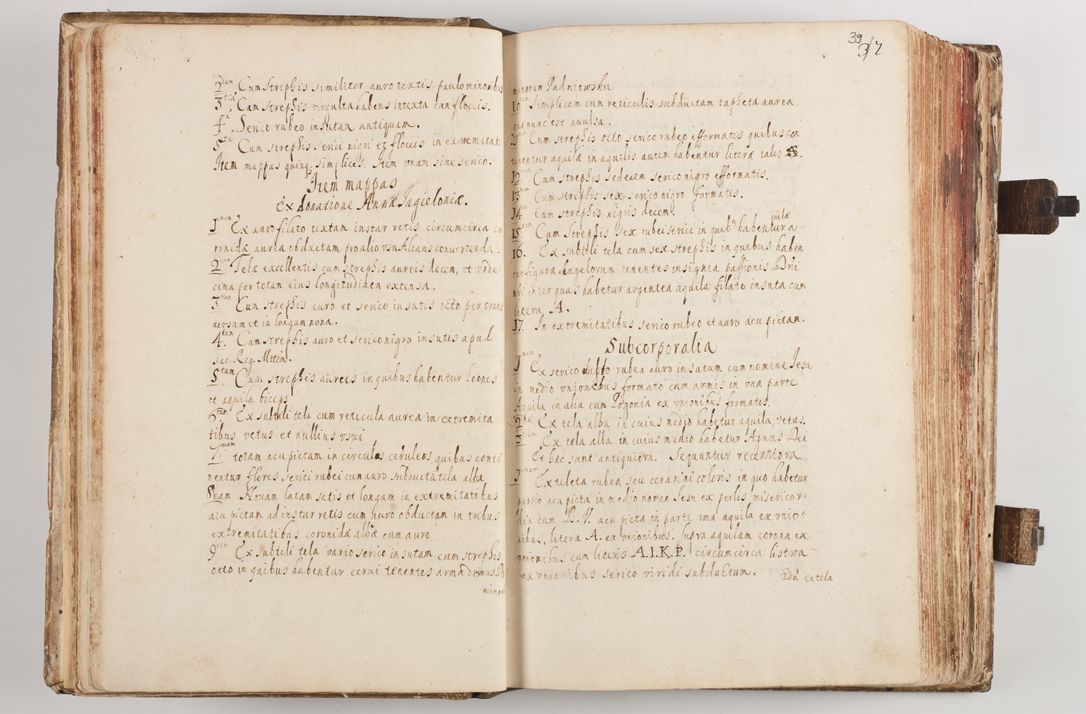 2dam Cum strephis similiter auro textis paulominoribus
3tia. Cum strephis virgulta habens intexta cum floccis.
4ta. Serico rubeo insutam antiquam.
5ta Cum strephis serici nigri et floccis in extremitati
Item mappas quinq; simplices. Item vnam sine serico.
Item mappas
Ex donatione Annæ Jagieloniæ.
1mam Ex auro filato textam instar retis circumcirca co
ronidæ aurea obductam pro alio vsu Alians conuertenda.
2dam Telæ excellentis cum strephis aureis decem, et vnde
cima per totam eius longitudinem extensa.
3tiam Cum strephis auro et serico insutis octo per trans
uersum et in longum nona.
4tam Cum strephis auro et serico nigro insutis apud
sac. Reg. Mttem.
5tam Cum strephis aureis in quibus habentur leones
et aquala biceps
6tam Ex subtili tela cum reticula aurea in extremita
tibus vetus et nullius vsui
7mam totam acu pictam in circulos cæruleos quibus conti
nentur flores serici rubei cum auro subductâ tela alba
8uam Nouam latam satis et longam in extremitatibus
acu pictam ad instar retis cum auro obductam in tribus
extremitatibus coronidâ albâ cum auro
9nam Ex subtili tela vario serico insutam cum strephis
octo in quibus habentur cerui tenentes arma domus D
minoru
39 37
minorum Padniowskii
10 Simplicem cum reticulis subductam tapheta aurea
quæ nunc est auulsa.
11 Cum strephis octo serico rubeo efformatis quibus con
tinentur aquilæ in aquilis autem habentur literæ tales
12 Cum strephis sedecem serico nigro efformatis.
13 Cum strephis sex serico nigro formatis.
14 Cum strephis nigris decem.
15 Cum strephis sex rubei serici in quib9 habentur a-
quilæ
16. Ex subtili tela cum sex strephis in quibus haben
tur figuræ Angelorum tenentes insignia passionis Dni
nri inter quas habetur argentea aquila filato insuta cum
litera A.
17. In extremitatibus serico rubeo et auro acu pictam.
Subcorporalia
1mum Ex serico rubeo auro insutum cum nomine Jesu
in medio vnionibus formato cum armis in vna parte
Aquila in alia cum Pogonia ex vnionibus formatis.
2dum Ex tela alba in cuius medio habetur aquila, vetus.
3tium Ex tela alba in cuius medio habetur Agnus Dei
Et hæc sunt antiquiora. Sequuntur recentiora
1mum Ex teleta rubea seu ceranini coloris in quo habetur
passio acu picta in medio nomen Jesu ex perlis misericor-
dia cum B. V. acu picta in parte vna aquila ex vnio-
nibus, litera A. ex vnionibus. supra aquilam corona ex
vnionibus cum literis A.I.K.P. circumcirca listwa
ex vnionibus serico viridi subductum.
2dū ex tela